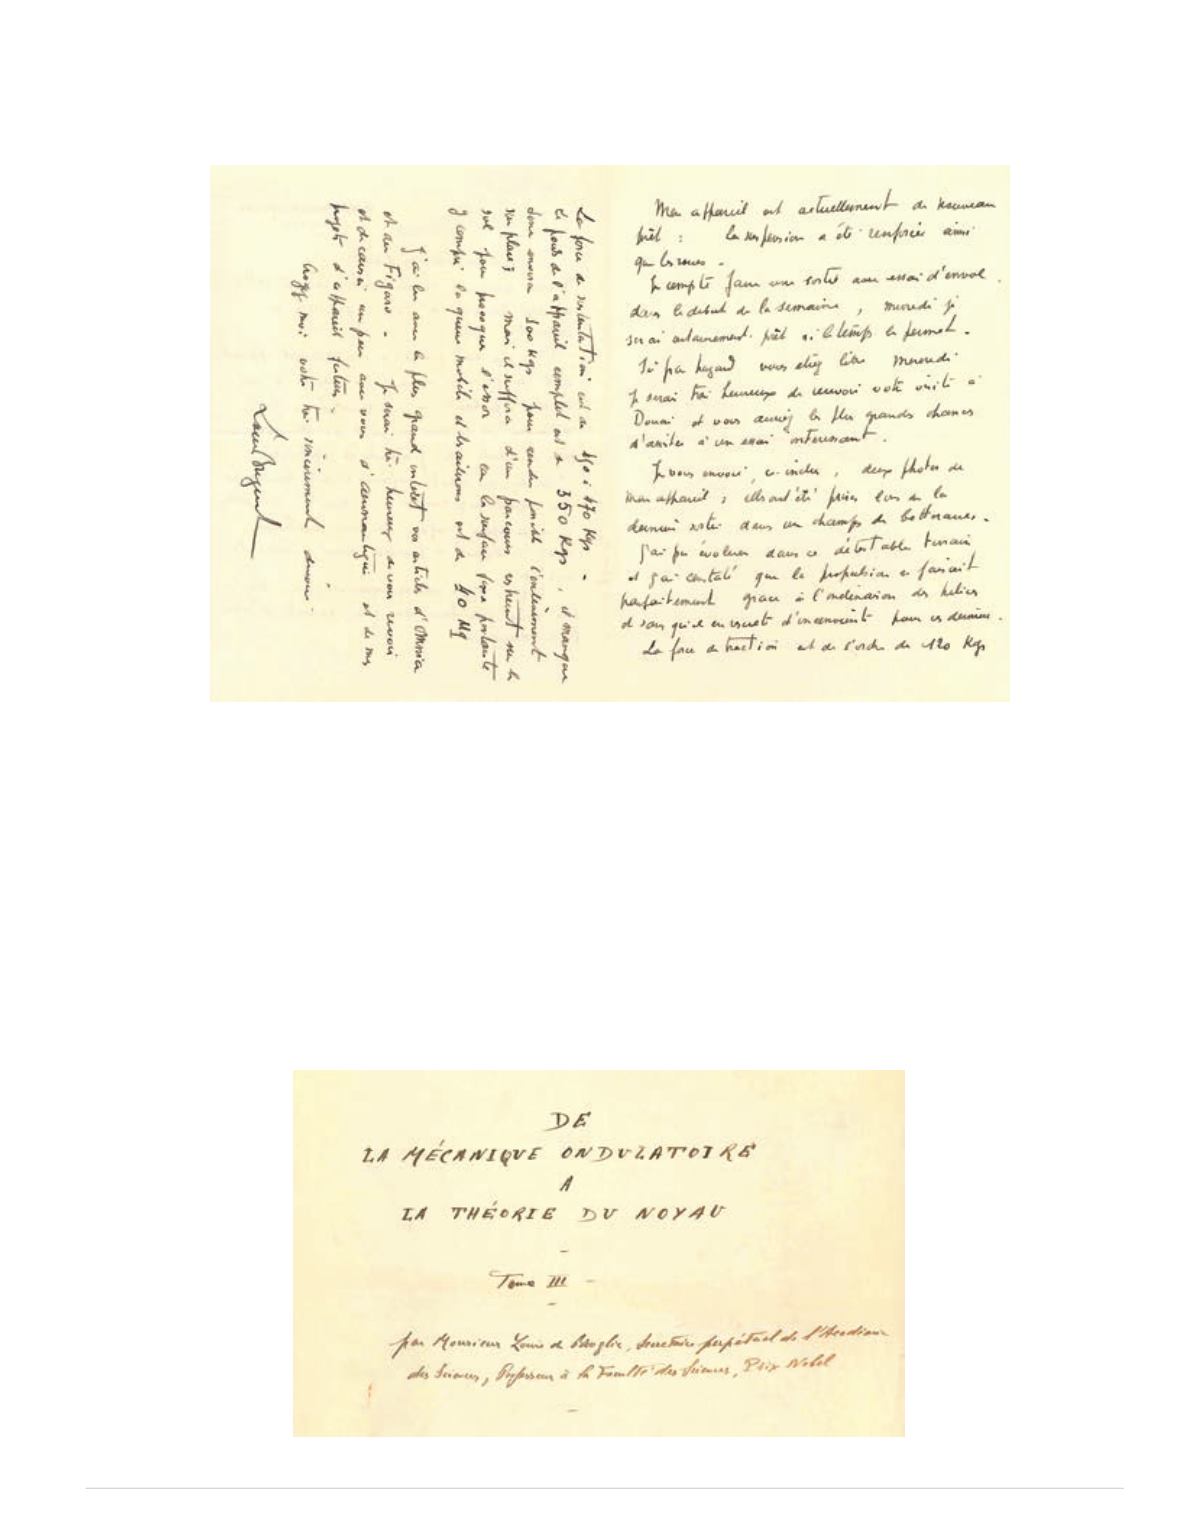 Mon appareil est actuellement de nouveau
prêt : la suspension a été renforcée ainsi
que les roues.
Je compte faire une sortie avec essai d'envol
dans le début de la semaine, mercredi je
serai certainement prêt si le temps le permet.
Si par hasard vous étiez libre mercredi
je serai très heureux de recevoir votre visite à
Douai et vous auriez les plus grandes chances
d'assister à un essai intéressant.
Je vous envoie, ci-inclus, deux photos de
mon appareil ; elles ont été prises lors de la
dernière sortie dans un champs de betteraves.
J'ai pu évoluer dans ce détestable terrain
et j'ai constaté que la propulsion se faisait
parfaitement grace à l'inclinaison des hélices
et sans qu'il en résulte d'inconvénient pour ces dernières.
La force de traction est de l'ordre de 120 Kgs
La force de sustentation est de à 470 Kgs.
Le poids de l'appareil complet est de 550 Kgs, il manque
donc environ 100 Kgs pour rendre possible l'enlèvement
sur place ; mais il suffira d'un parcours restreint sur le
sol pour provoquer l'essor car la surface fixe portante
y compris la queue mobile et les ailerons est de 40 Mq
J'ai lu avec le plus grand intérêt vos articles d'Omnia
et du Figaro. Je serai très heureux de vous revoir
et de causer un peu avec vous d'aéronautique et de mes
projets d'appareil futurs.
Croyez moi votre très sincèrement dévoué.
Louis Breguet
DE
LA MÉCANIQUE ONDULATOIRE
A
LA THÉORIE DU NOYAU
Tome III
par Monsieur Louis de Broglie, Secrétaire perpétuel de l'Académie
des Sciences, Professeur à la Faculté des Sciences, Prix Nobel